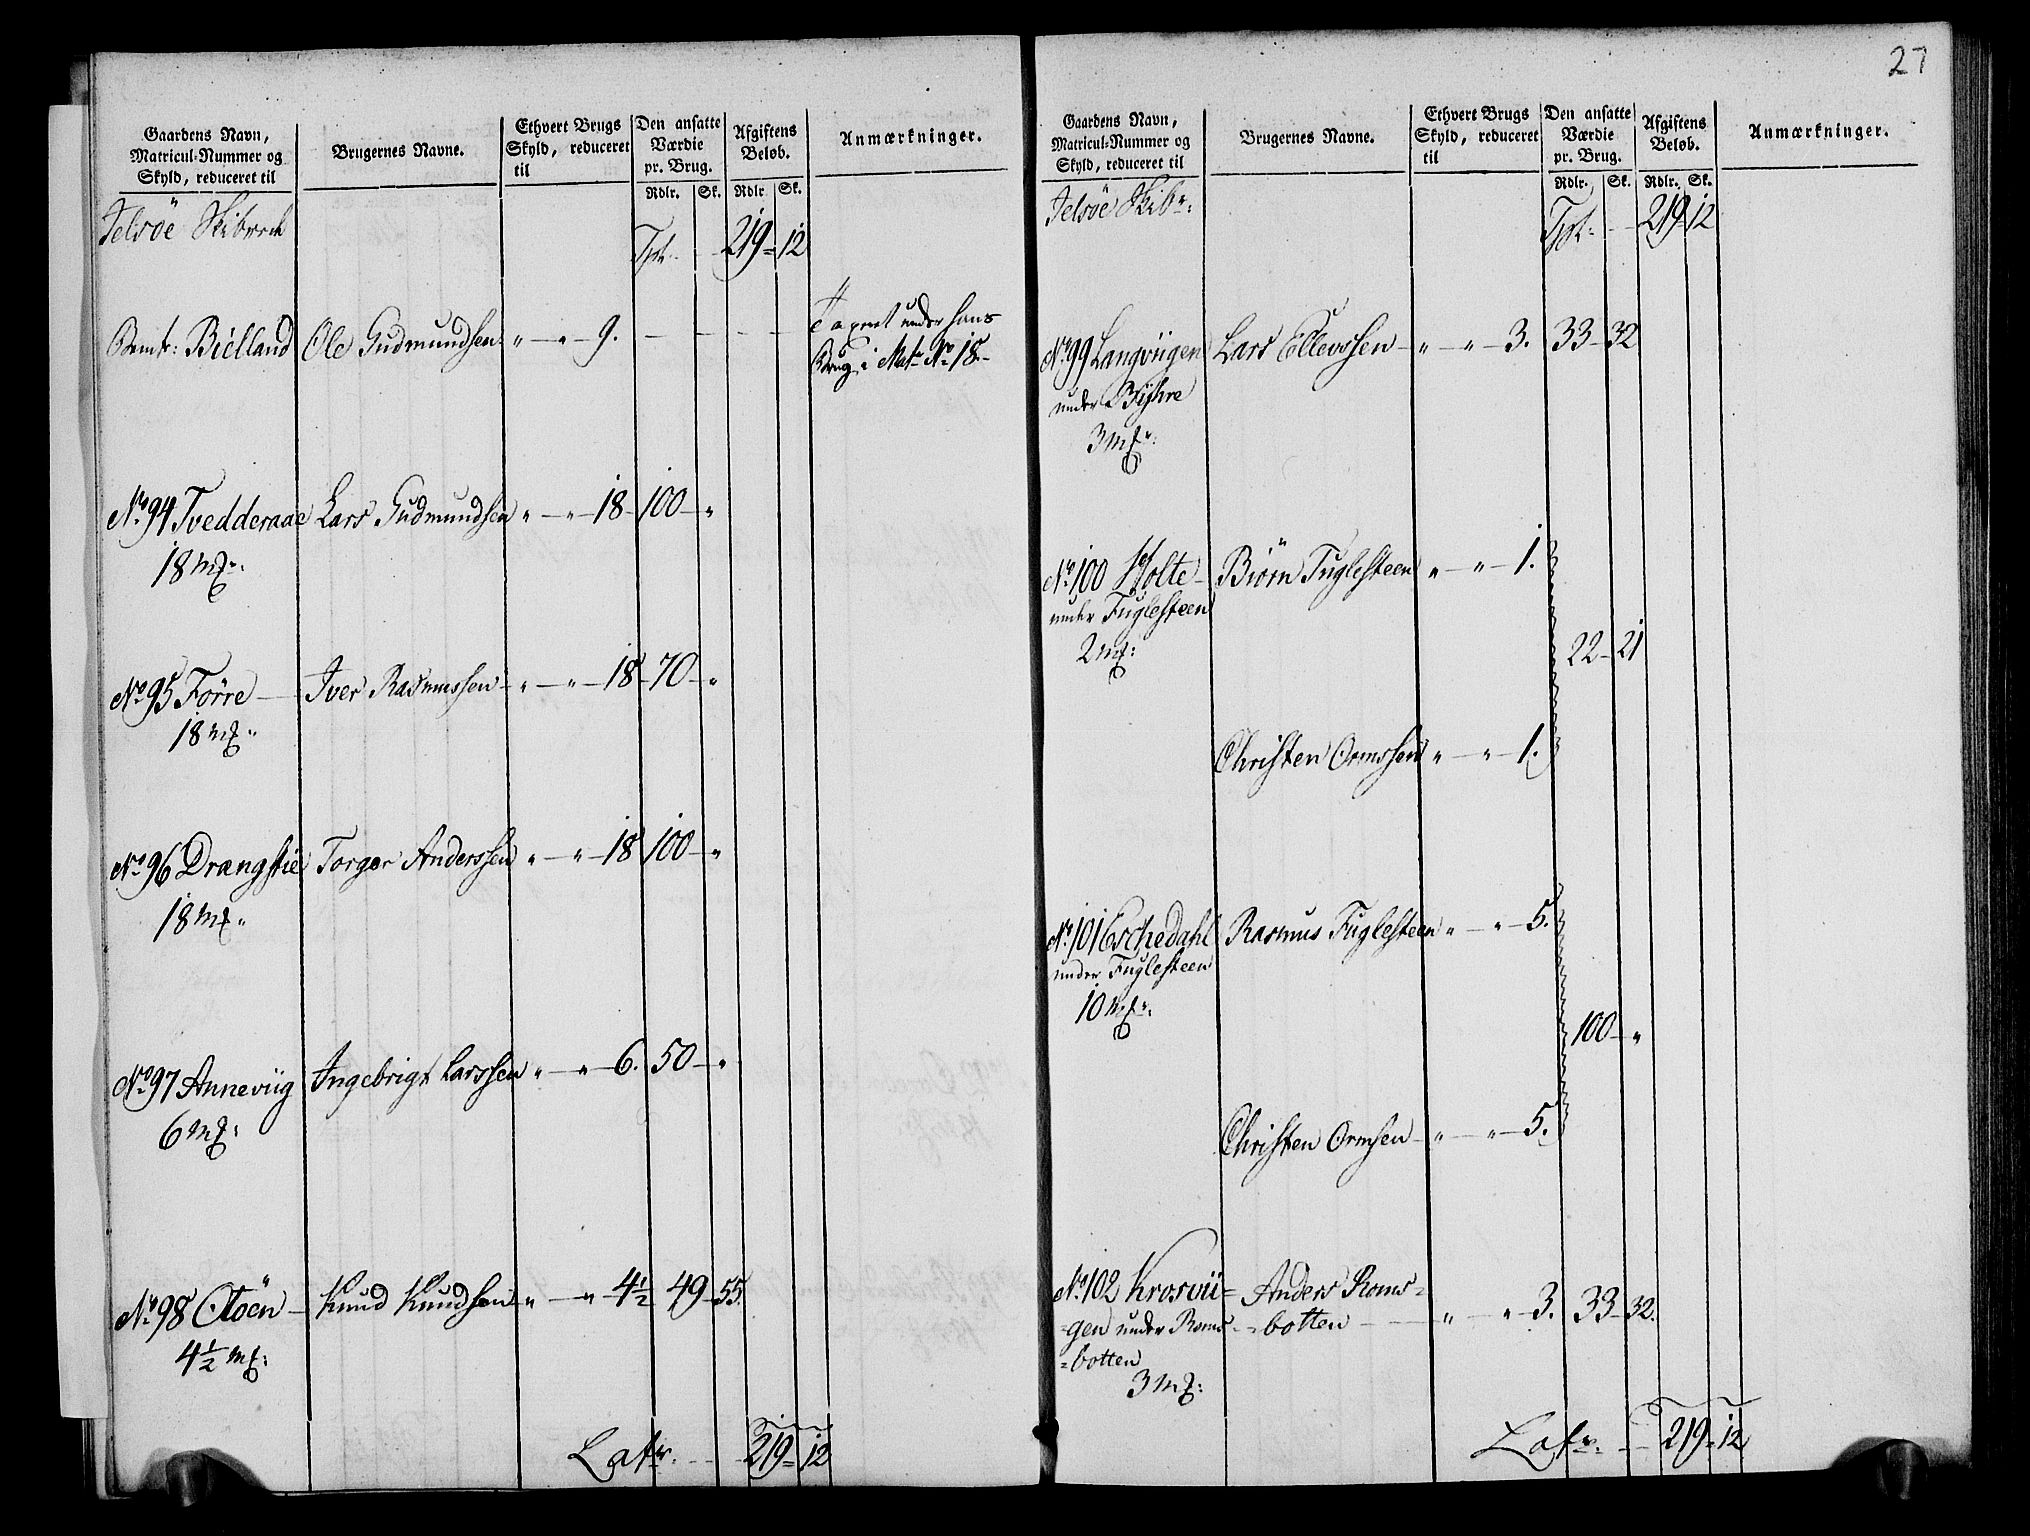 27
Gaardens Navn,
Matricul-Nummer og
Skyld, reduceret til
Brugernes Navne.
Ethvert Brugs
Skyld, reduceret
til
Den ansatte
Værdie
pr. Brug.
Rdlr. Sk.
Afgiftens
Beløb.
Rdlr. Sk.
Anmærkninger.
Jelsöe Skibred
Tpt. 219 = 12
Bielland Ole Gudmundsen " — " — 9. — — — — Taxeret under hans
Brug i Matr No 18.
No 94 Tvedderaae Lars Gudmundsen " — " — 18 — 100 — "
18 mf:
No 95 Førre — Iver Rasmussen — " — " — 18 — 70 — "
18 mf:
No 96 Drangstie Torger Anderssen " — " — 18 100 — "
18 mf:
No 97 Anneviig Ingebrigt Larssen " — " — 6. 50 — "
6 mf:
No 98 Otöen — Knud Knudsen " — " — 4 1/2 49 — 55.
4 1/2 mf:
Latr. 219 = 12
Gaardens Navn,
Matricul-Nummer og
Skyld, reduceret til
Brugernes Navne.
Ethvert Brugs
Skyld, reduceret
til
Den ansatte
Værdie
pr. Brug.
Rdlr. Sk.
Afgiftens
Beløb.
Rdlr. Sk.
Anmærkninger.
Jelsöe Skibr:
Tpt. 219 = 12
No 99 Langviigen Lars Ellevssen — " — " — 3. 33 — 32
under Bÿhre
3 mf:
No 100 Holte — Biörn Fuglesteen " — " — 1.
under Fuglesteen
2 mf:
22 — 21
Christen Ormssen " — " — 1.
No 101 Eschedahl Rasmus Fuglesteen " — " — 5.
under Fuglesteen
10 mf:
100 — "
Christen Ormsen — " — " — 5.
No 102 Krosvii= Anders Roms=
=gen under Roms =botten — " — " — 3. 33 — 32.
=botten
3 mf:
Latr. 219 = 12